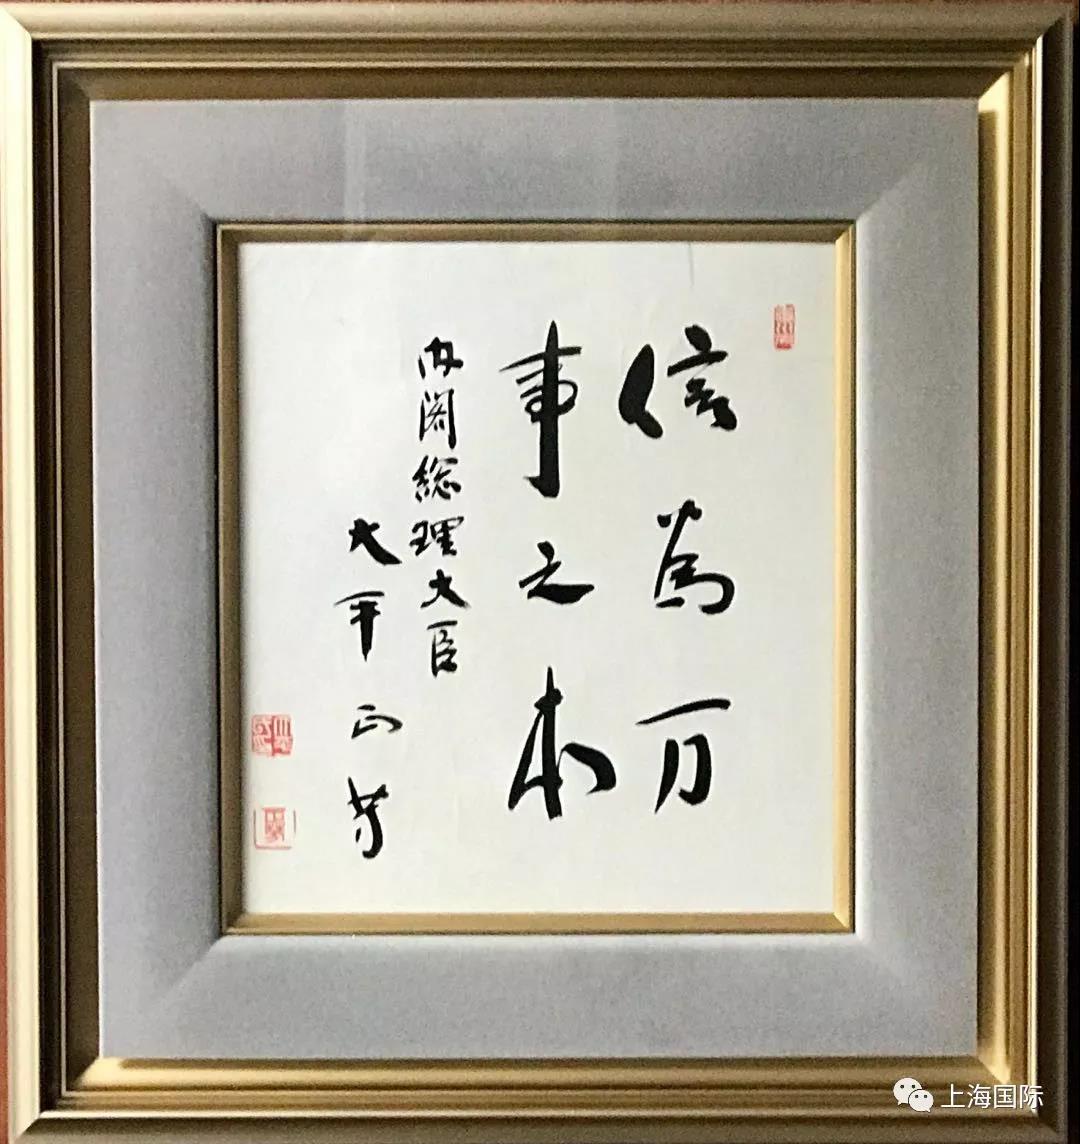 信為万
事之本
内阁総理大臣
大平正芳
上海国际